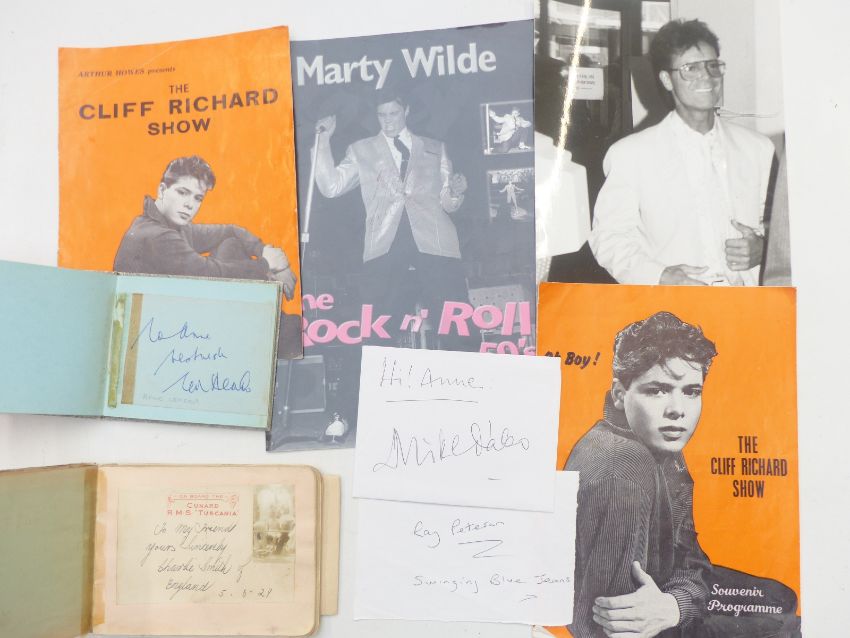 ARTHUR HOWES presents
THE
CLIFF RICHARD
SHOW
Marty Wilde
Rock n' Roll
50's
to Anne
Hi! Anne.
Oh Boy!
THE
CLIFF RICHARD
SHOW
Souvenir
Programme
ON BOARD THE
CUNARD
R.M.S "TUSCANIA
To My friend
yours Sincerely
Charlie Smith of
England
5-8-29
Ray Peterson
Swinging Blue Jeans